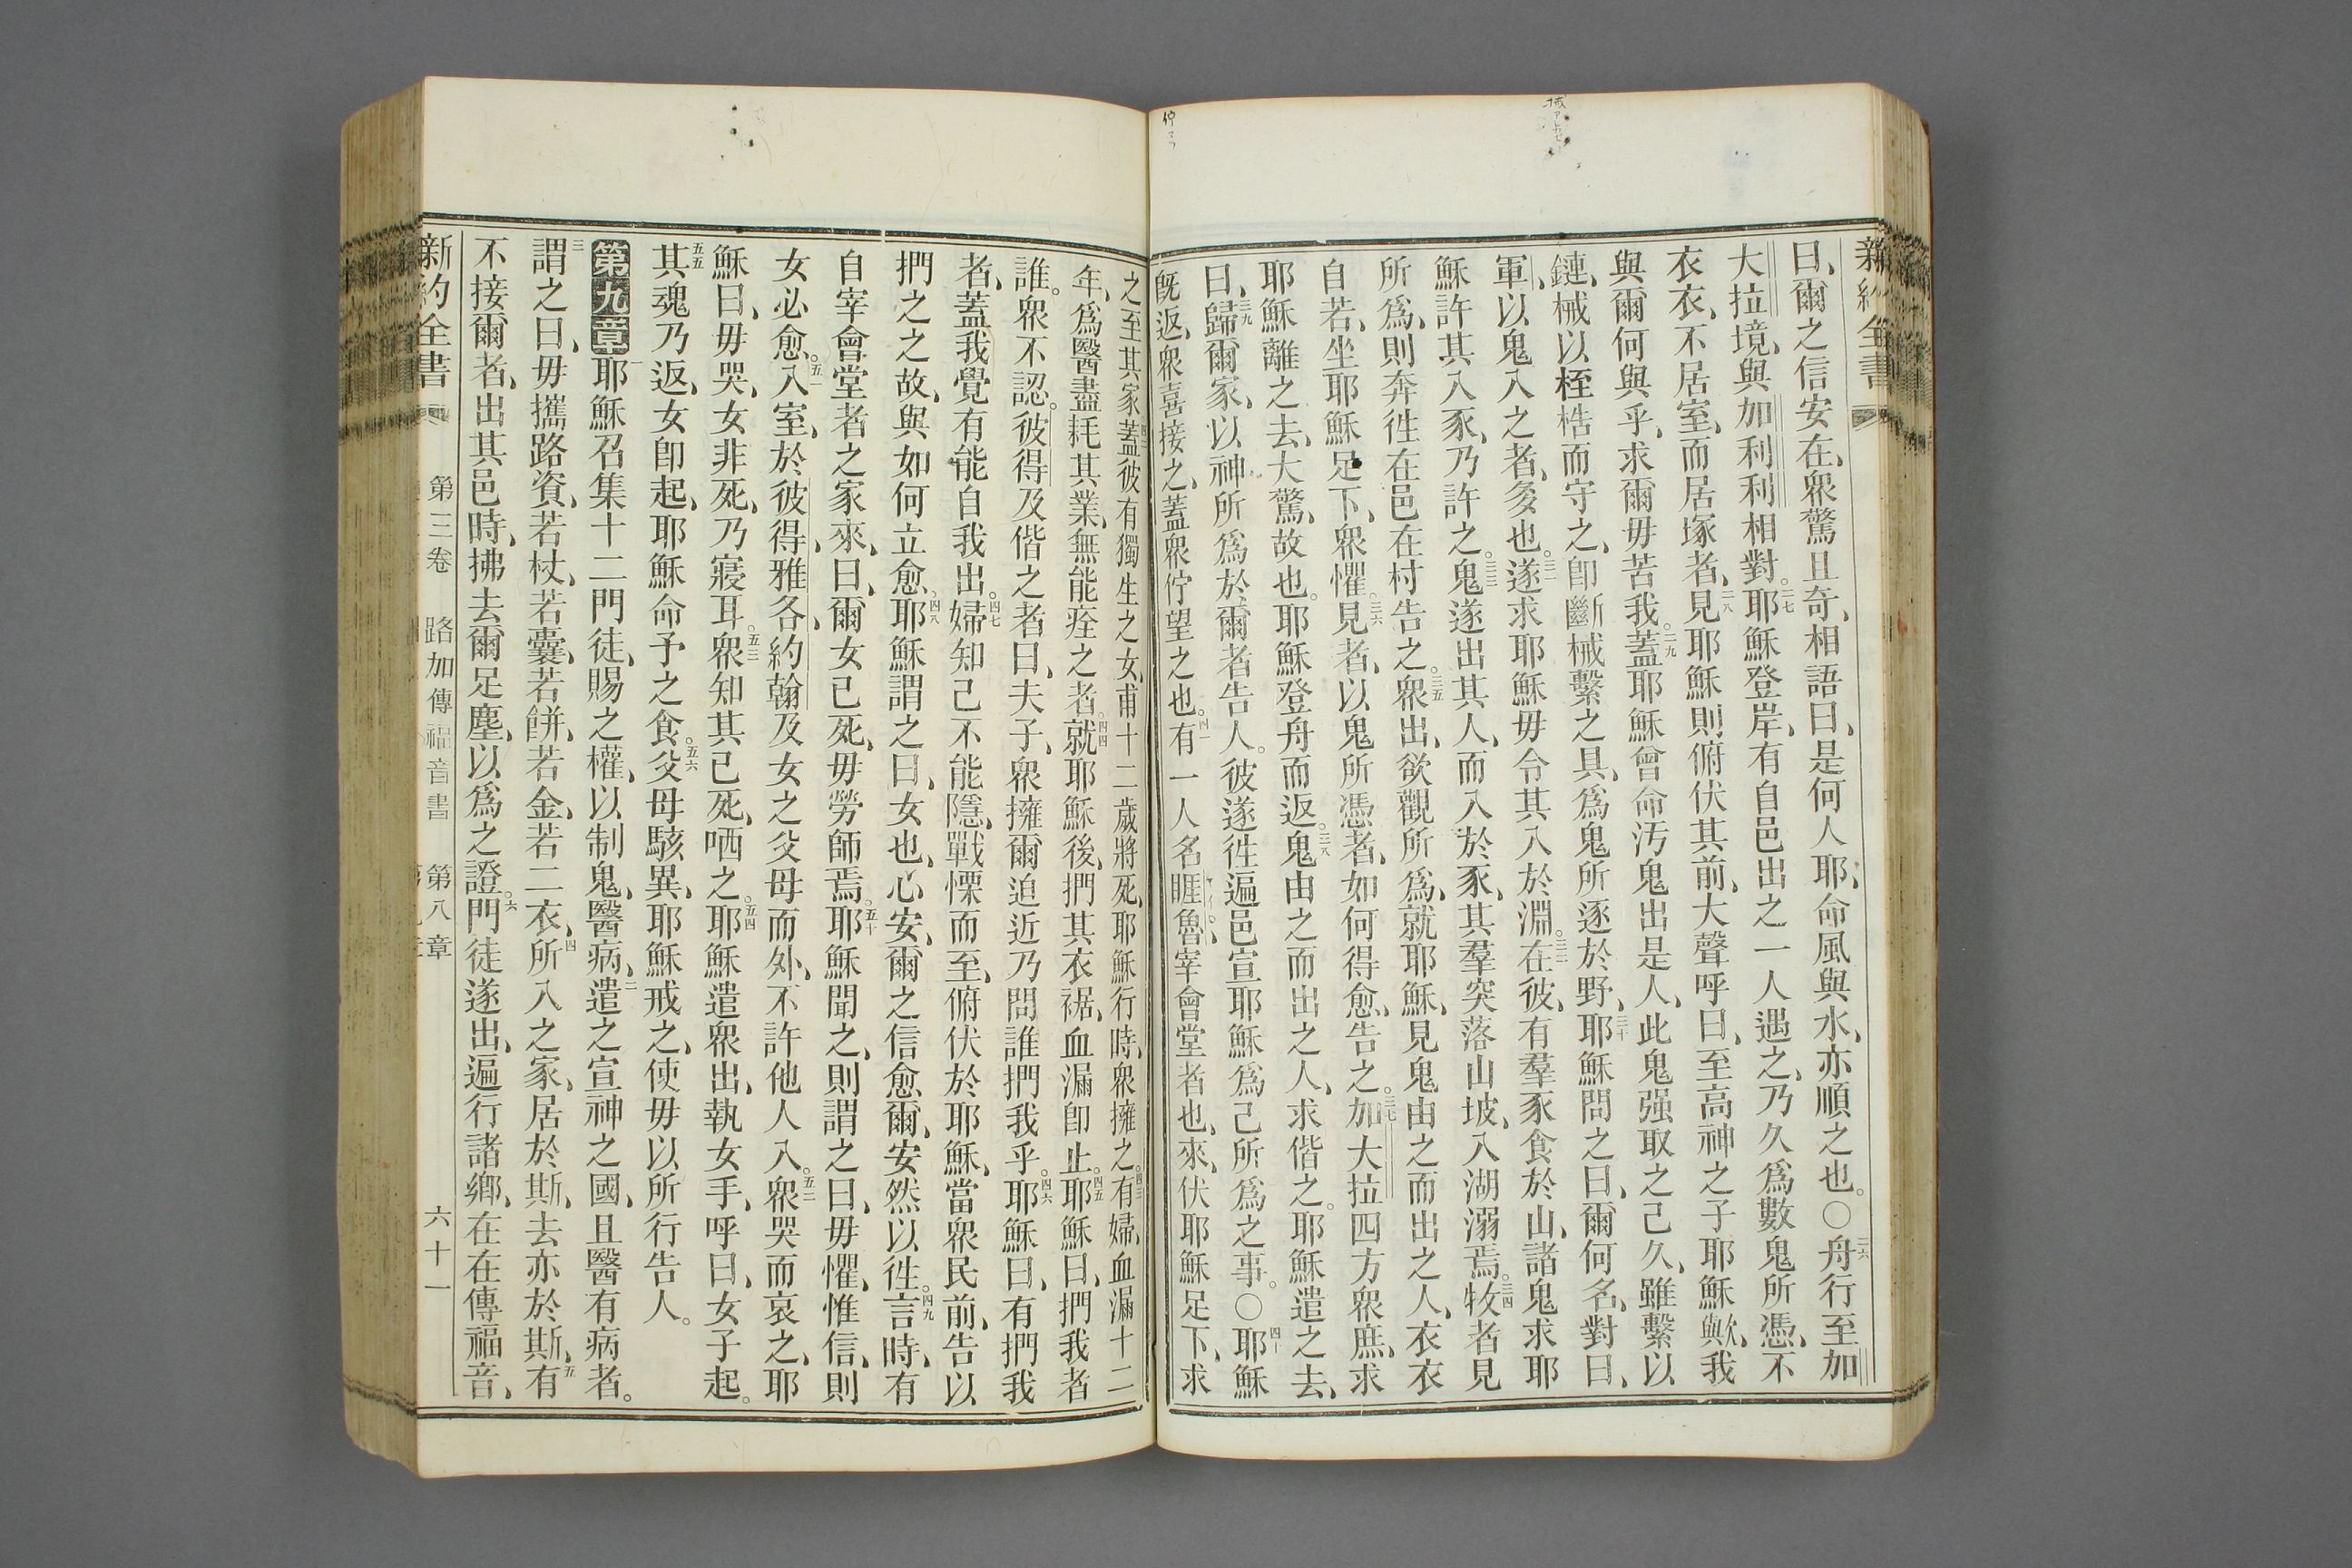 新約全書
曰、爾之信安在、衆驚且奇、相語曰、是何人耶、命風與水、亦順之也。〇二六舟行至加
大拉境、與加利利相對。二七耶穌登岸、有自邑出之一人遇之、乃久爲數鬼所憑、不
衣衣、不居室、而居塚者、二八見耶穌則俯伏其前、大聲呼曰、至高神之子耶穌歟、我
與爾何與乎、求爾毋苦我。二九蓋耶穌曾命汚鬼出是人、此鬼强取之已久、雖繫以
鏈、械以桎梏而守之、卽斷械繫之具、爲鬼所逐於野、三十耶穌問之曰、爾何名、對曰、
軍、以鬼入之者、多也。三一遂求耶穌毋令其入於淵。三二在彼、有羣豕食於山、諸鬼求耶
穌許其入豕、乃許之。三三鬼遂出其人、而入於豕、其羣突落山坡、入湖溺焉。三四牧者見
所爲、則奔往在邑在村告之。三五衆出、欲觀所爲、就耶穌、見鬼由之而出之人、衣衣
自若、坐耶穌足下、衆懼。三六見者、以鬼所憑者、如何得愈、告之。三七加大拉四方衆庶、求
耶穌離之去、大驚、故也。耶穌登舟而返。三八鬼由之而出之人、求偕之。耶穌遣之去、
曰、三九歸爾家、以神所爲於爾者告人。彼遂往遍邑宣耶穌爲己所爲之事。〇四十耶穌
旣返、衆喜接之、蓋衆佇望之也。四一有一人名睚魯、宰會堂者也、來、伏耶穌足下、求
之至其家、四二蓋彼有獨生之女、甫十二歲將死、耶穌行時、衆擁之。四三有婦、血漏十二
年、爲醫盡耗其業、無能痊之者。四四就耶穌後、捫其衣裾、血漏卽止。四五耶穌曰、捫我者
誰。衆不認。彼得及偕之者曰、夫子、衆擁爾迫近乃問誰捫我乎。四六耶穌曰、有捫我
者、蓋我覺有能自我出。四七婦知己不能隱、戰慄而至、俯伏於耶穌、當衆民前、告以
捫之之故、與如何立愈。四八耶穌謂之曰、女也、心安、爾之信愈爾、安然以往。四九言時、有
自宰會堂者之家來、曰、爾女已死、毋勞師焉。五十耶穌聞之、則謂之曰、毋懼、惟信、則
女必愈。五一入室、於彼得、雅各、約翰及女之父母而外、不許他人入。五二衆哭而哀之、耶
穌曰、毋哭、女非死、乃寢耳。五三衆知其已死、哂之。五四耶穌遣衆出、執女手、呼曰、女子起。
五五其魂乃返、女卽起、耶穌命予之食。五六父母駭異、耶穌戒之、使毋以所行告人。
第九章一耶穌召集十二門徒、賜之權、以制鬼、醫病、二遣之宣神之國、且醫有病者。
三謂之曰、毋攜路資、若杖、若囊、若餅、若金、若二衣、四所入之家、居於斯、去亦於斯、五有
不接爾者、出其邑時、拂去爾足塵、以爲之證。六門徒遂出、遍行諸鄉、在在傳福音、
新約全書 第三卷 路加傳福音書 第八章 六十一